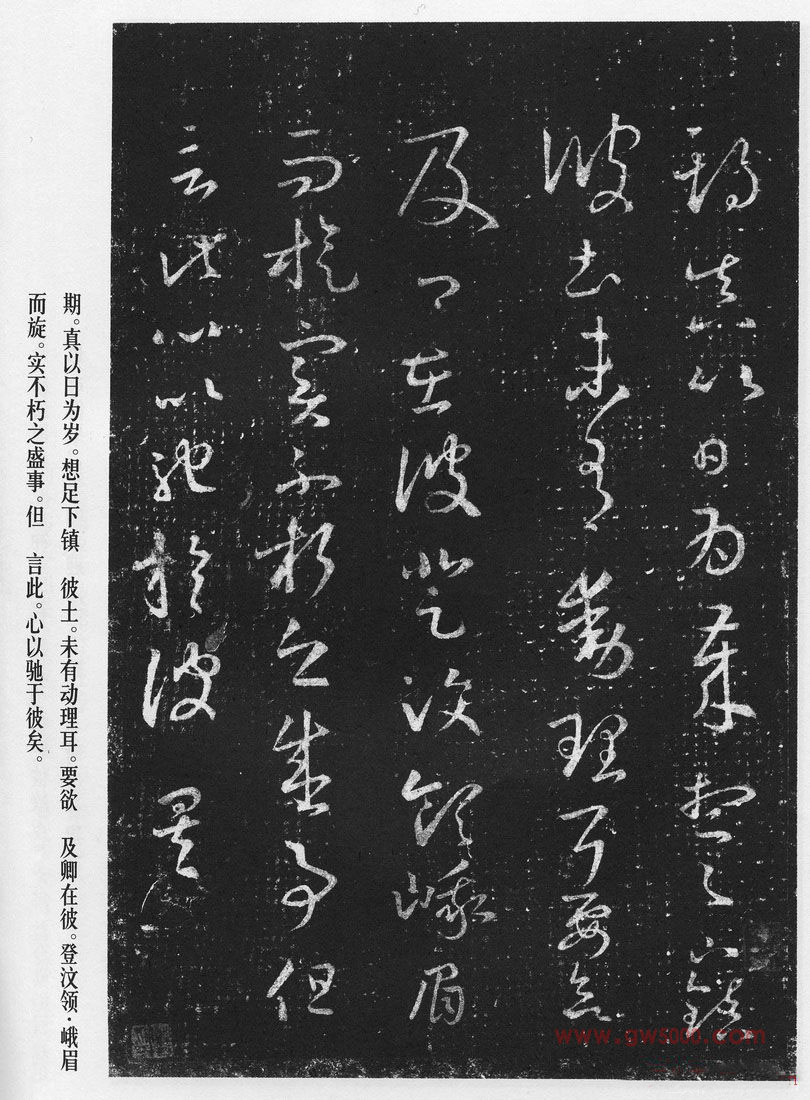 期真以日為歲想足下鎮
彼土未有動理耳要欲
及卿在彼登汶領峨眉
而旋實不朽之盛事但
言此心以馳於彼矣
期。真以日为岁。想足下镇　彼土。未有动理耳。要欲　及卿在彼。登汶领·峨眉
而旋。实不朽之盛事。但　言此。心以驰于彼矣。